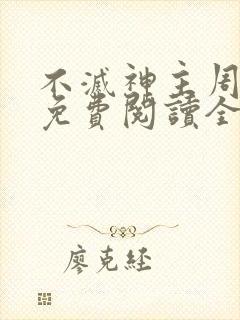 不滅神主周
免費閱讀全
廖克経